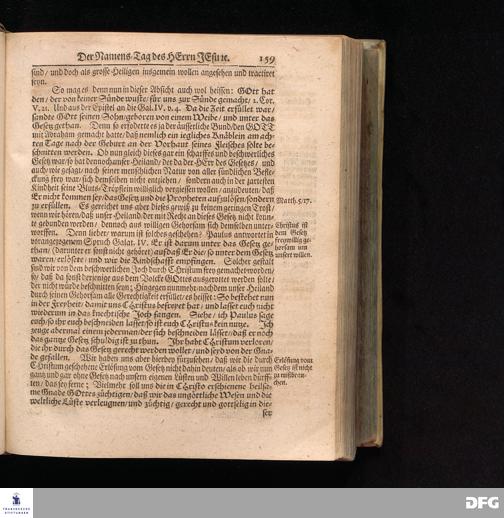 Der Namens-Tag des HErrn JEsu ꝛc. 159
sind/ und doch als grosse Heiligen insgemein wollen angesehen und tractiret
seyn.
So mag es denn nun in dieser Absicht auch wol heissen: GOtt hat
den/ der von keiner Sünde wuste/ für uns zur Sünde gemacht/ 2. Cor.
V. 21. Und aus der Epistel an die Gal. IV. v. 4. Da die Zeit erfüllet war/
sandte GOtt seinen Sohn/ geboren von einem Weibe/ und unter das
Gesetz gethan. Denn so erfoderte es ja der äusserliche Bund/ den GOTT
mit Abraham gemacht hatte/ daß nemlich ein iegliches Knäblein am ach-
ten Tage nach der Geburt an der Vorhaut seines Fleisches solte be-
schnitten werden. Ob nun gleich dieses gar ein scharffes und beschwerliches
Gesetz war/ so hat dennoch unser Heiland/ der da der HErr des Gesetzes/ und
auch/ wie gesagt/ nach seiner menschlichen Natur von aller sündlichen Befle-
ckung frey war/ sich demselben nicht entziehen/ sondern auch in der zartesten
Kindheit seine Bluts-Tröpflein williglich vergiessen wollen/ anzudeuten/ daß
Er nicht kommen sey/ das Gesetz und die Propheten aufzulösen/ sondern
zu erfüllen. Es gereichet uns aber dieses gewiß zu keinem geringen Trost/
wenn wir hören/ daß unser Heiland der mit Recht an dieses Gesetz nicht kon-
te gebunden werden/ dennoch aus willigen Gehorsam sich demselben unter-
worffen. Denn lieber/ warum ist solches geschehen? Paulus antwortet in
vorangezogenem Spruch Galat. IV. Er ist darum unter das Gesetz ge-
than/ (darunter er sonst nicht gehöret) auf daß Er die/ so unter dem Gesetz
waren/ erlösete/ und wir die Kindschafft empfingen. Solcher gestalt
sind wir von dem beschwerlichen Joch durch Christum frey gemachet worden/
so/ daß da sonst derjenige aus dem Volcke GOttes ausgerottet werden solte/
der nicht würde beschnitten seyn; Hingegen nunmehr/ nachdem unser Heiland
durch seinen Gehorsam alle Gerechtigkeit erfüllet/ es heisset: So bestehet nun
in der Freyheit/ damit uns Christus befreyet hat/ und lasset euch nicht
wiederum in das knechtische Joch fangen. Siehe/ ich Paulus sage
euch/ so ihr euch beschneiden lasset/ so ist euch Christus kein nutze. Ich
zeuge abermal einem iederman/ der sich beschneiden lässet/ daß er noch
das gantze Gesetz schuldig ist zu thun. Ihr habt Christum verloren/
die ihr durch das Gesetz gerecht werden wollet/ und seyd von der Gna-
de gefallen. Wir haben uns aber hierbey fürzusehen/ daß wir die durch
Christum geschehene Erlösung vom Gesetz nicht dahin deuten/ als ob wir nun
gantz und gar ohne Gesetz nach unsern eigenen Lüsten und Willen leben dürff-
ten/ das sey ferne; Vielmehr soll uns die in CHristo erschienene heilsa-
me Gnade GOttes züchtigen/ daß wir das ungöttliche Wesen und die
weltliche Lüste verleugnen/ und züchtig/ gerecht und gottselig in die-
ser
Matth. 5/17.
Christus ist
dem Gesetz
freywillig ge-
horsam um
unsert willen.
Erlösung vom
Gesetz ist nicht
zu mißbrau-
chen.
FRANCKESCHE
STIFTUNGEN
DFG